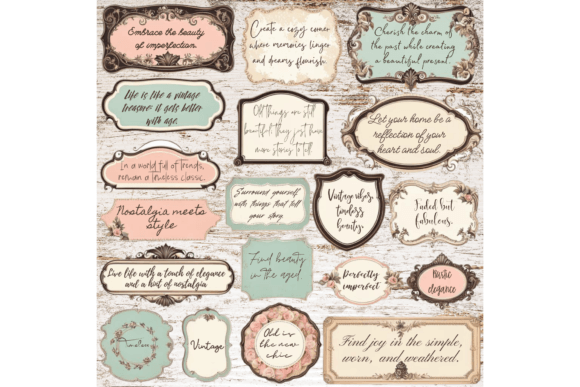 Embrace the beauty
of imperfection.
Create a cozy corner
where memories linger
and dreams flourish.
Cherish the charm of
the past while creating
a beautiful present.
Life is like a vintage
treasure: it gets better
with age.
Old things are still
beautiful; they just have
more stories to tell.
Let your home be a
reflection of your
heart and soul.
In a world full of trends,
remain a timeless classic.
Surround yourself
with things that tell
your story.
Vintage vibes,
timeless
beauty.
Faded but
fabulous.
Nostalgia meets
style
Live life with a touch of elegance
and a hint of nostalgia
Find beauty
in the aged.
Perfectly
imperfect
Rustic
elegance
Vintage
Old is
the new
chic
Find joy in the simple,
worn, and weathered.